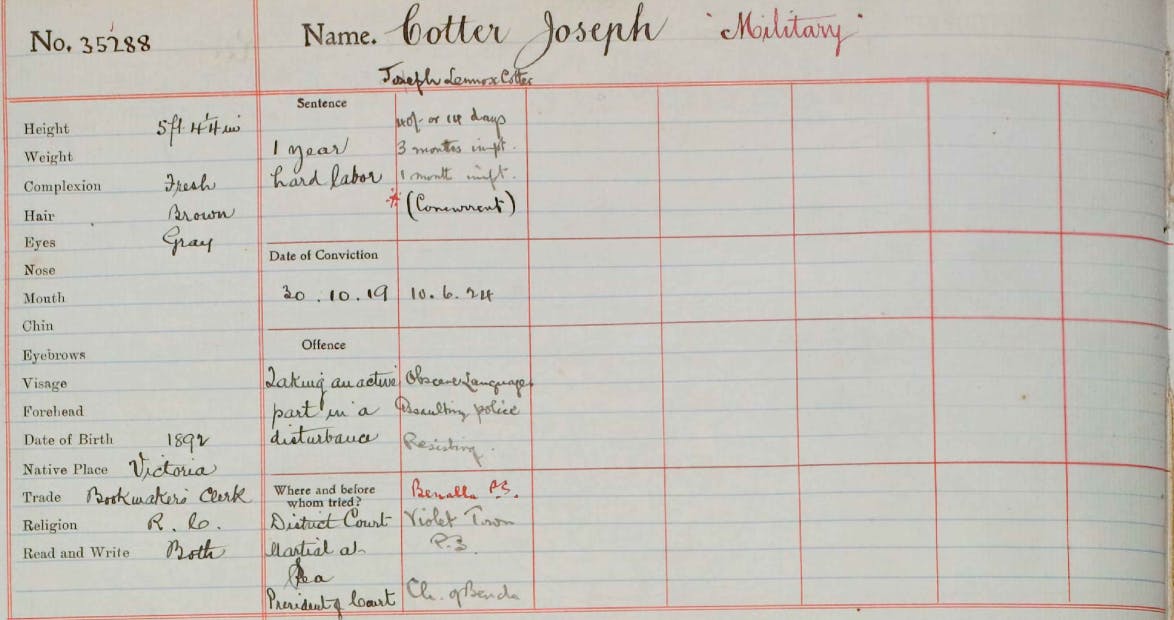 No. 35288
Name. Cotter Joseph "Military"
Joseph Lennox Cotter
Height 5ft 4¼ in
Weight
Complexion Fresh
Hair Brown
Eyes Gray
Nose
Month
Chin
Eyebrows
Visage
Forehead
Date of Birth 1892
Native Place Victoria
Trade Bookmakers Clerk
Religion R. C.
Read and Write Both
Sentence
1 year
hard labor
or 14 days
3 months impt.
1 month impt.
* (Concurrent)
Date of Conviction
30.10.19
10.6.24
Offence
Taking an active
part in a
disturbance
Obscene Language
Assaulting police
Resisting.
Where and before
whom tried?
District Court
Martial at
Sea
President of Court
Benalla P.S.
Violet Town
Ch. of Bench